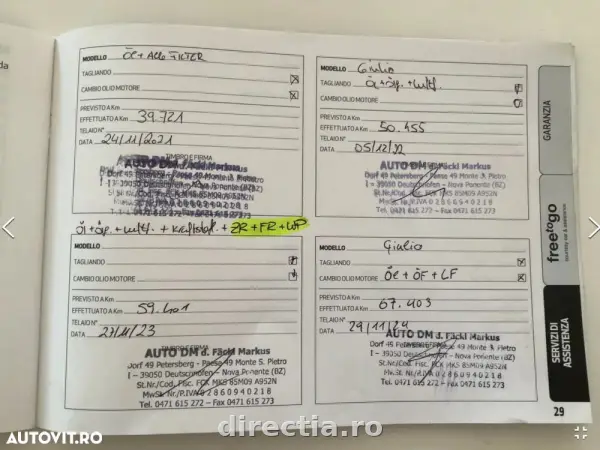 MODELLO Öl + Alle FILTER
TAGLIANDO
CAMBIO OLIO MOTORE
PREVISTO A Km
EFFETTUATO A Km 39.721
TELAIO N°
DATA 24/11/2021
TIMBRO E FIRMA
AUTO DM d. Fäckl Markus
Dorf 49 Petersberg - Paese 49 Monte S. Pietro
I - 39050 Deutschnofen - Nova Ponente (BZ)
MODELLO Giulio
TAGLIANDO Öl + Ölf. + Luftf.
CAMBIO OLIO MOTORE
PREVISTO A Km
EFFETTUATO A Km 50.455
TELAIO N°
DATA 05/12/22
AUTO DM d. Fäckl Markus
Dorf 49 Petersberg - Paese 49 Monte S. Pietro
I - 39050 Deutschnofen - Nova Ponente (BZ)
Tel. 0471 615 272 - Fax 0471 615 273
Öl + Ölf. + Luftf. + Kraftstoff. + ZR + FR + WP
TAGLIANDO
CAMBIO OLIO MOTORE
PREVISTO A Km
EFFETTUATO A Km 59.401
TELAIO N°
DATA 27/11/23
TIMBRO E FIRMA
AUTO DM d. Fäckl Markus
Dorf 49 Petersberg - Paese 49 Monte S. Pietro
I - 39050 Deutschnofen - Nova Ponente (BZ)
St.Nr./Cod. Fisc. FCK MKS 85M09 A952N
MwSt. Nr./P.IVA 02860940218
Tel. 0471 615 272 - Fax 0471 615 273
MODELLO Giulio
TAGLIANDO
CAMBIO OLIO MOTORE Öl + ÖF + LF
PREVISTO A Km
EFFETTUATO A Km 67.403
TELAIO N°
DATA 29/11/24
AUTO DM d. Fäckl Markus
Dorf 49 Petersberg - Paese 49 Monte S. Pietro
I - 39050 Deutschnofen - Nova Ponente (BZ)
St.Nr./Cod. Fisc. FCK MKS 85M09 A952N
MwSt. Nr./P.IVA 02860940218
Tel. 0471 615 272 - Fax 0471 615 273
GARANZIA
freetogo
SERVIZI DI
ASSISTENZA
29
da
AUTOVIT.RO
directia.ro